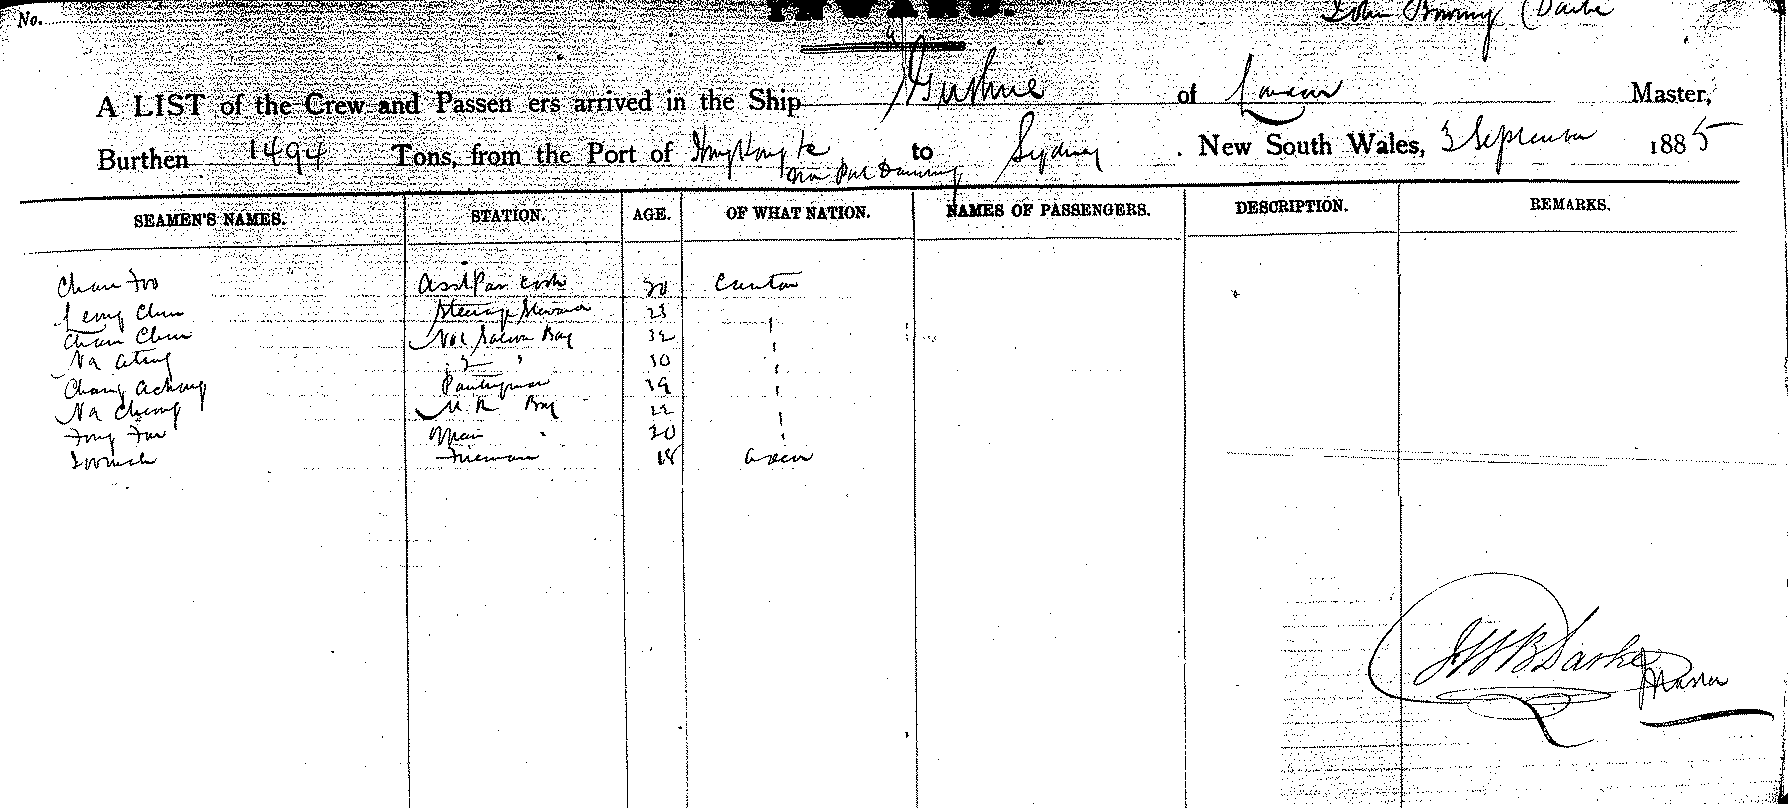 No.
INWARD.
John
A LIST of the Crew and Passen ers arrived in the Ship Guthrie of London Master,
Burthen 1494 Tons, from the Port of Hong Kong to Sydney. New South Wales, 3 September 1885
via Port Darwin
SEAMEN'S NAMES. STATION. AGE. OF WHAT NATION. NAMES OF PASSENGERS. DESCRIPTION. REMARKS.
Chan Foo Asst Pan Cook 30 Canton
Leong Chun Steerage Steward 23 "
Chan Chun No 1 Saloon Boy 32 "
Na 2 " 30 "
Chang Achong Pantryman 29 "
Na Cheong M R Boy 22 "
Fong 20 "
Fireman 18
Darke
Master